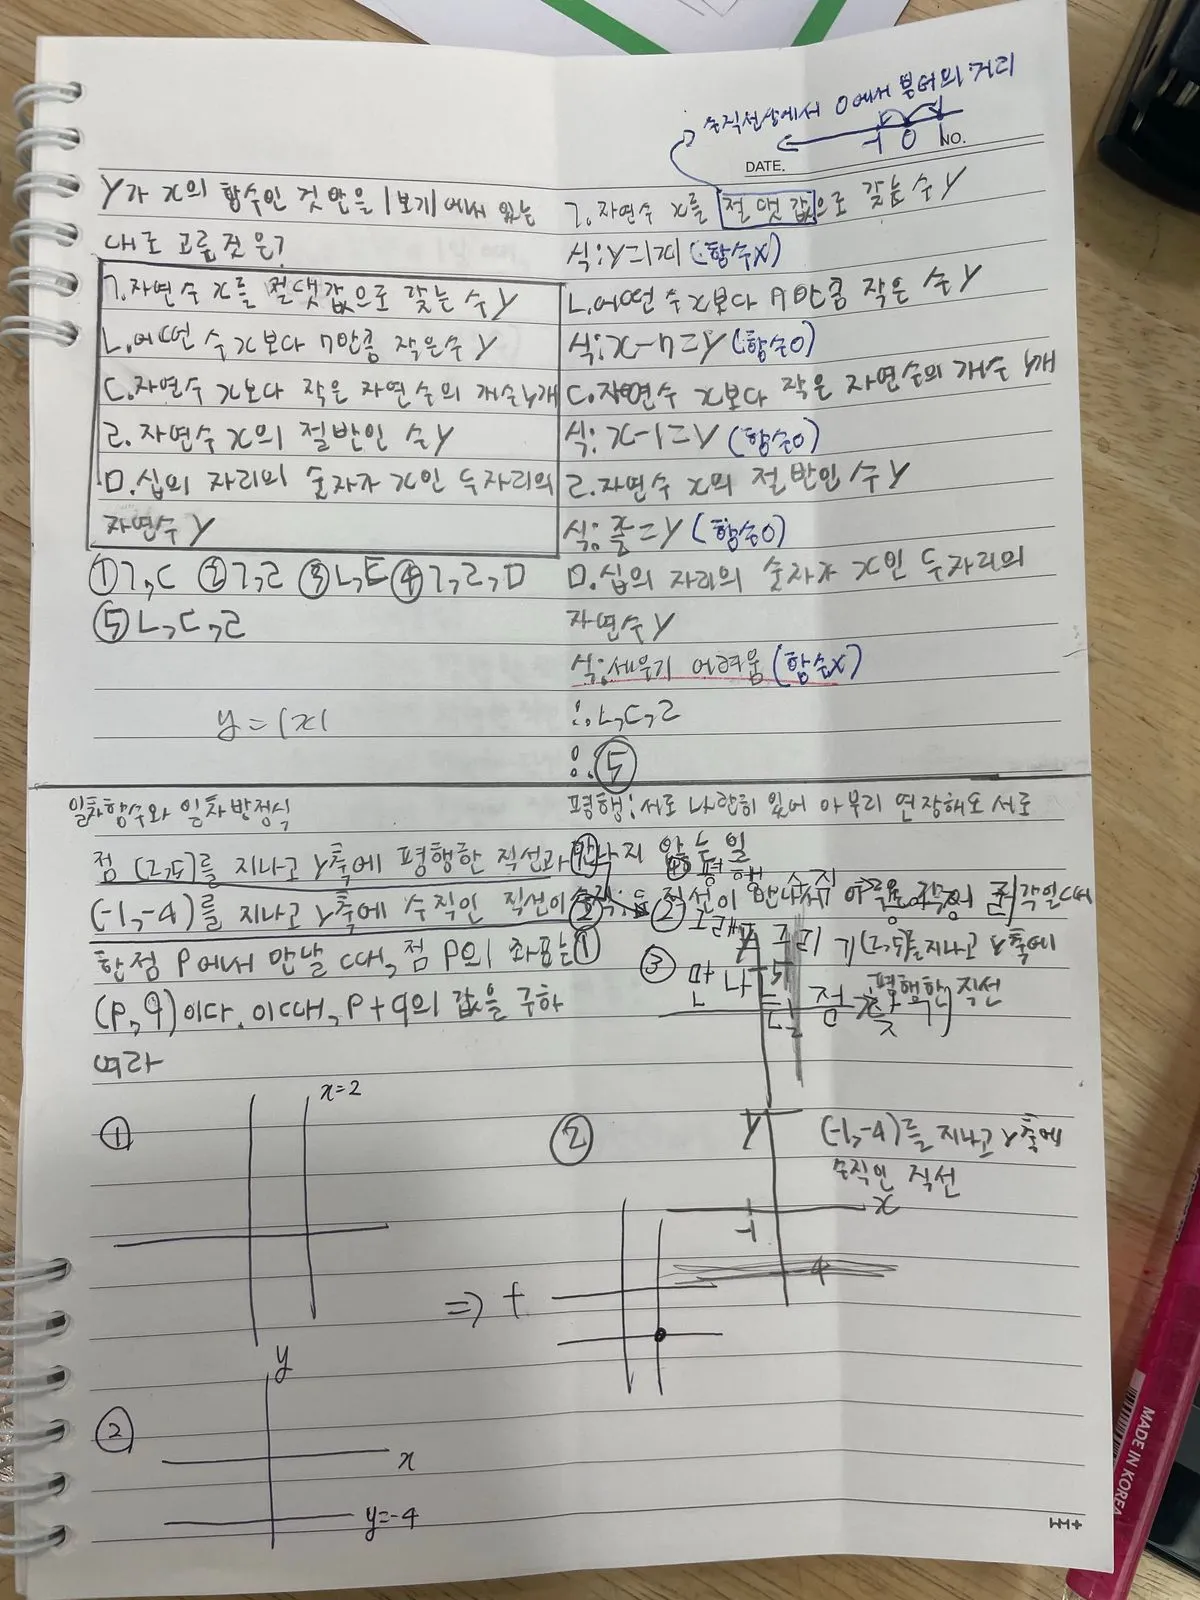 수직선상에서 0에서 부터의 거리
-1 0 1
DATE. NO.
y가 x의 함수인 것만을 |보기|에서 있는
대로 고른 것은?
ㄱ.자연수 x를 절댓값으로 갖는 수 y
ㄴ.어떤 수 x보다 7만큼 작은수 y
ㄷ.자연수 x보다 작은 자연수의 개수 y개
ㄹ.자연수 x의 절반인 수 y
ㅁ.십의 자리의 숫자가 x인 두자리의
자연수 y
①ㄱ,ㄷ ②ㄱ,ㄹ ③ㄴ,ㄷ ④ㄱ,ㄹ,ㅁ
⑤ㄴ,ㄷ,ㄹ
y=|x|
ㄱ.자연수 x를 절댓값으로 갖는 수 y
(함수X)
ㄴ.어떤 수 x보다 7만큼 작은 수 y
식:x-7=y (함수O)
ㄷ.자연수 x보다 작은 자연수의 개수 y개
식:x-1=y (함수O)
ㄹ.자연수 x의 절반인 수 y
(함수O)
ㅁ.십의 자리의 숫자가 x인 두자리의
자연수 y
식:세우기 어려움 (함수X)
∴ㄴ,ㄷ,ㄹ
∴⑤
일차함수와 일차방정식
점 (2,5)를 지나고 y축에 평행한 직선과
(-1,-4)를 지나고 y축에 수직인 직선이
한점 P에서 만날 때, 점 P의 좌표는
(p,q)이다. 이때, p+q의 값을 구하
여라
평행:서로 나란히 있어 아무리 연장해도 서로
만나지 않는 일
직선이 만나
① 평행
② 그래프 그리기
③ 만나는 점
(2,5)를 지나고 y축에
평행한 직선
① x=2
② y x y=-4
② y x -1
(-1,-4)를 지나고 y축에
수직인 직선
⇒
MADE IN KOREA